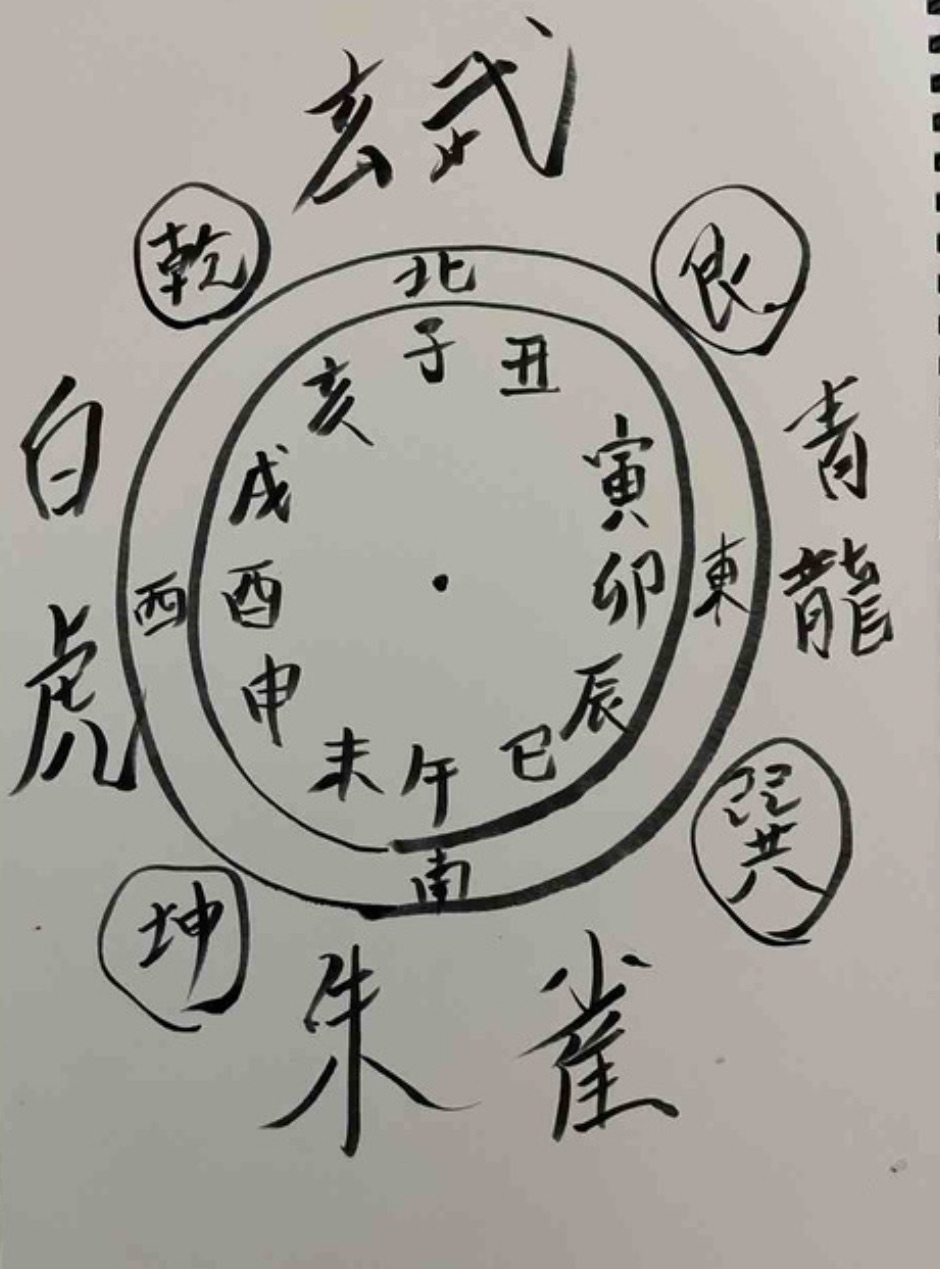 玄武
乾
艮
北
子
丑
亥
寅
戌
白虎
青龍
西
酉
卯
東
申
辰
未
午
巳
巽
南
坤
朱雀